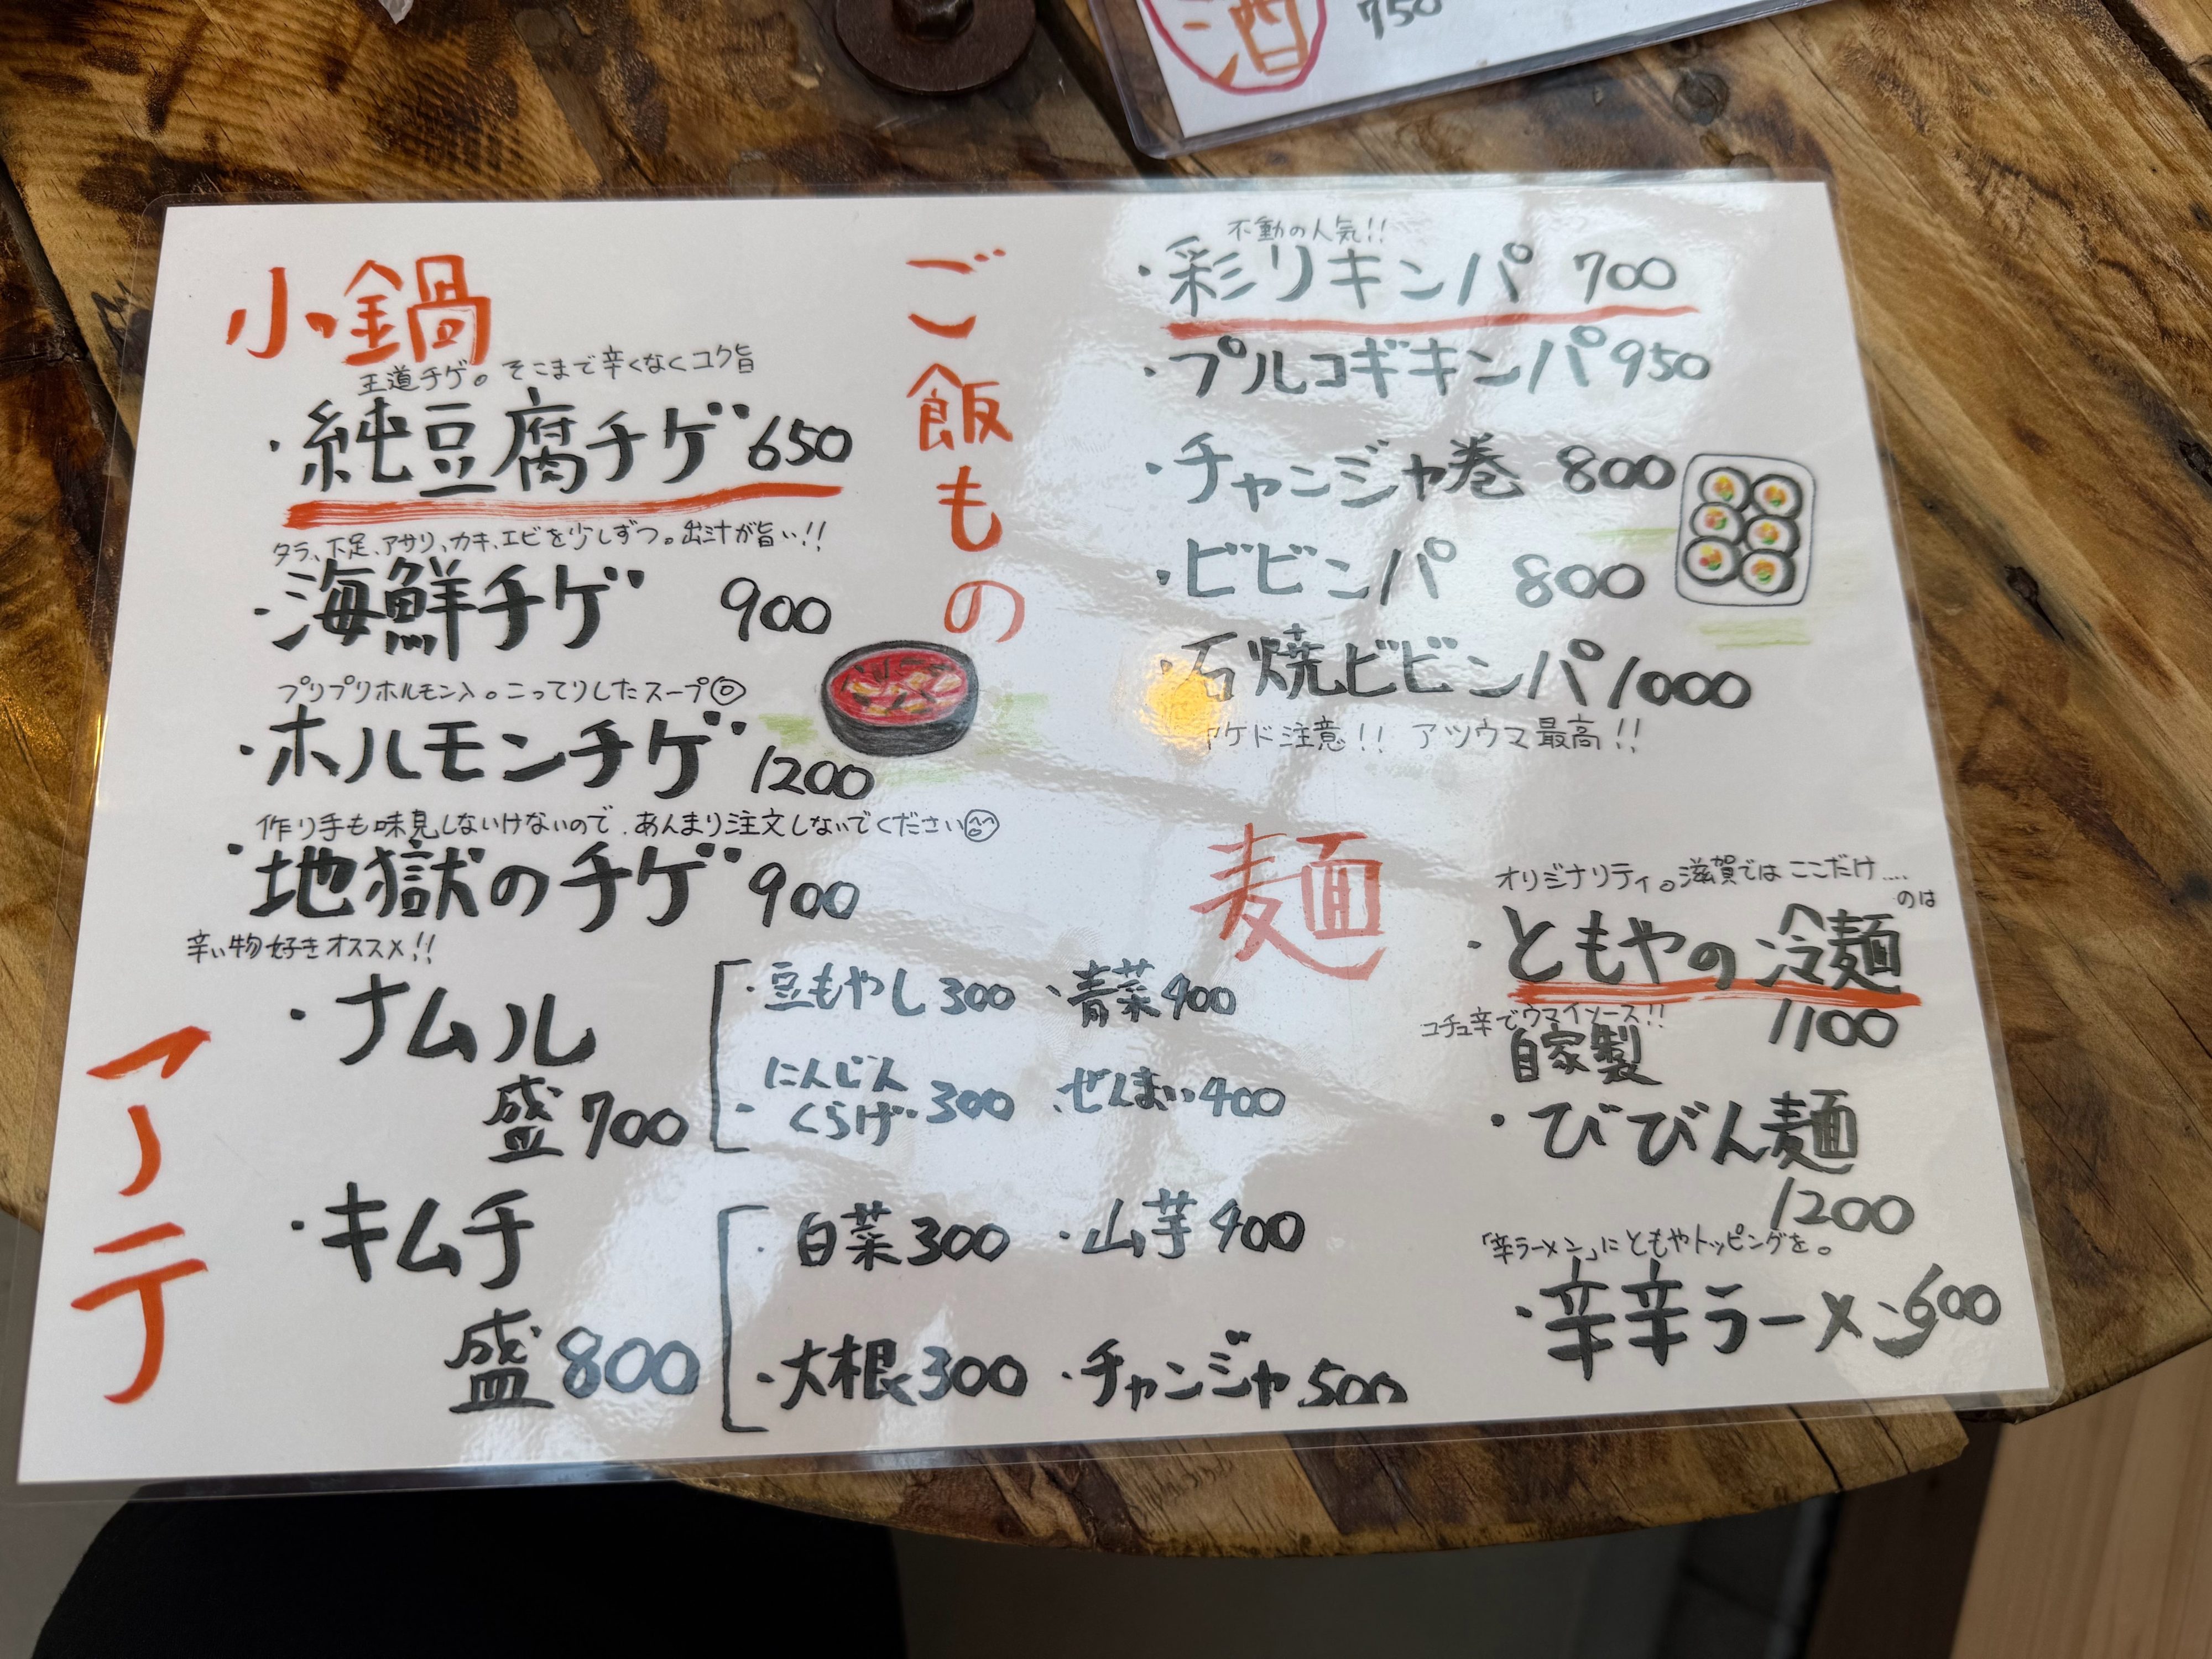 酒
750
小鍋
王道チゲ。そこまで辛くなくコク旨
・純豆腐チゲ 650
タラ、下足、アサリ、カキ、エビを少しずつ。出汁が旨い!!
・海鮮チゲ 900
プリプリホルモン入。こってりしたスープ◎
・ホルモンチゲ 1200
作り手も味見しないけないので、あんまり注文しないでください
・地獄のチゲ 900
辛い物好きオススメ!!
アテ
・ナムル
盛 700
・豆もやし 300 ・青菜 400
・にんじんくらげ 300 ・ぜんまい 400
・キムチ
盛 800
・白菜 300 ・山芋 400
・大根 300 ・チャンジャ 500
ご飯もの
不動の人気!!
・彩りキンパ 700
・プルコギキンパ 950
・チャンジャ巻 800
・ビビンパ 800
・石焼ビビンパ 1000
ヤケド注意!! アツウマ最高!!
麺
オリジナリティ。滋賀ではここだけ....
のは
・ともやの冷麺
1100
コチュ辛でウマイソース!!
自家製
・びびん麺
1200
「辛ラーメン」にともやトッピングを。
・辛辛ラーメン 600